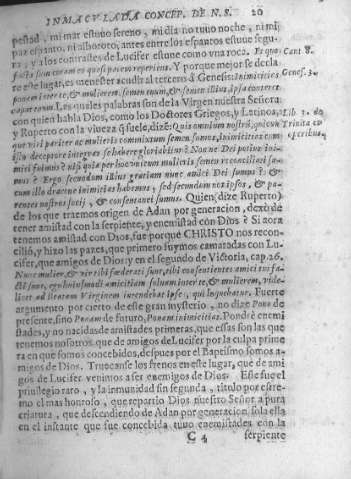 INMACVLADA CONCEP. DE N. S. 20
pestad, mi mar estuuo sereno, mi dia no tuuo noche, ni mi
paz espanto, ni alboroto; antes entre los espantos estuue segu-
ra, y a los contrastes de Lucifer estuue como vna roca. Ex quo Cant. 8.
facta sum coram eo quasi pacem reperiens. Y porque mejor se decla
re este lugar, es menester acudir al tercero de Genesis: Inimicitias Genes. 3.
ponam inter te, & mulierem, semen tuum, & semen illius, ipsa conteret
caput tuum. Las quales palabras son de la Virgen nuestra Señora
con quien habla Dios, como los Doctores Griegos, y Latinos,
y Ruperto con la viueza que suele, dize: Quis omnium nostrũ,
que viri pariter ac mulieris commixtum semen sumus, inimicitias cum
illo deceptore integras se habere gloriabitur? Nonne Dei potius inimi-
mici fuimus
mus? Ergo secundum illius gratiam nunc amici Dei sumus? &
cum illo dracone inimicitias habemus, sed secundum nos ipsos, & pa-
rentes nostros socij, & consentanei sumus. Quien (dize Ruperto)
de los que traemos origen de Adan por generacion, dexò de
tener amistad con la serpiente, y enemistad con Dios? Si aora
tenemos amistad con Dios, fue porque CHRISTO nos recon-
ciliò, y hizo las pazes, que primero fuymos camaradas con Lu-
cifer, que amigos de Dios: y en el segundo de Victoria, cap. 26.
Nunc mulier, & vir sibi fœderati sunt, sibi consentientes amici sus fa-
cti sunt, ergo huiusmodi amicitiam soluam inter te, & mulierem, vide-
licet ad Beatam Virginem intendebat ipse, qui loquebatur. Fuerte
argumento por cierto de este gran mysterio, no dize Pono de
presente, sino Ponam de futuro, Ponam inimicitias. Pondrè enemi
stades, y no nacidas de amistades primeras, que essas son las que
tenemos nosotros, que de amigos de Lucifer por la culpa prime
ra en que somos concebidos, despues por el Baptismo somos a-
migos de Dios. Truecanse los frenos en este lugar, que de ami
gos de Lucifer venimos a ser enemigos de Dios. Esse fue el
priuilegio raro, y la inmunidad sin segunda, titulo por estre-
mo el mas honroso, que repartio Dios nuestro Señor a pura
criatura, que descendiendo de Adan por generacion, sola ella
en el instante que fue concebida tuuo enemistades con la
C 4 serpiente